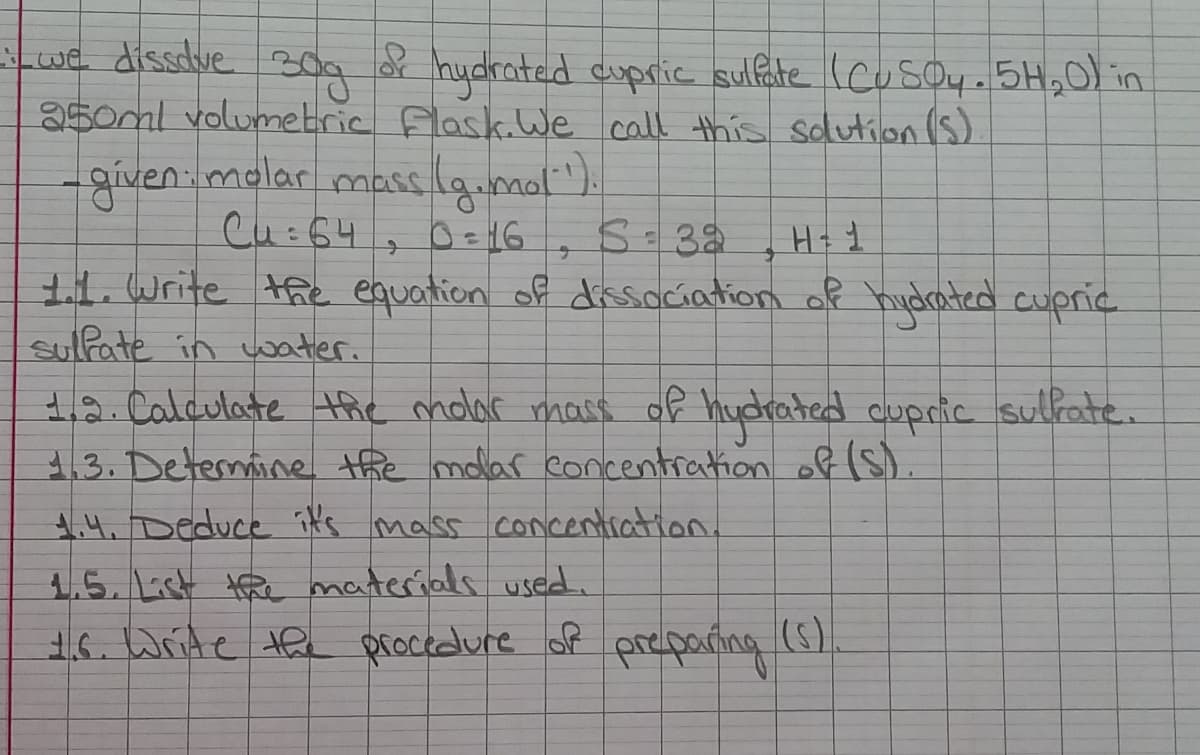 we dissolve 30g of hydrated cupric sulfate (CuSO4.5H2O) in
250ml volumetric Flask.We call this solution (S)
- given: molar mass (g.mol-1):
Cu = 64 , O = 16 , S = 32 , H = 1
1.1. Write the equation of dissociation of hydrated cupric
sulfate in water.
1.2. Calculate the molar mass of hydrated cupric sulfate.
1.3. Determine the molar concentration of (S).
1.4. Deduce it's mass concentration.
1.5. List the materials used.
1.6. Write the procedure of preparing (S).